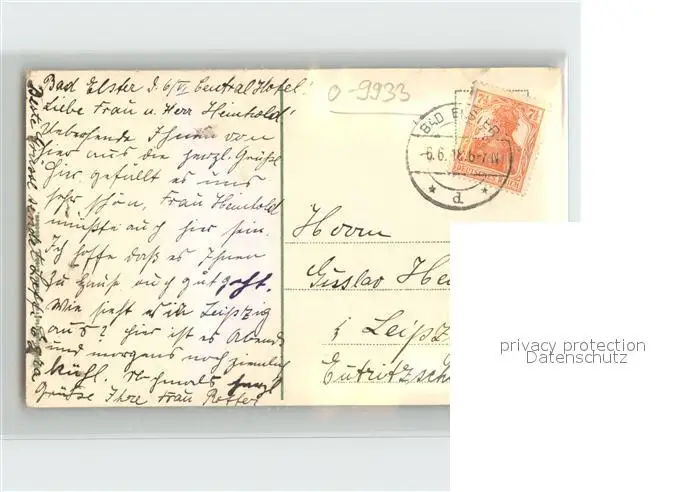 Bad Elster d. 6/VI Central Hotel.
Liebe Frau u. Herr Heinhold!
Uebersende Ihnen von
hier aus die herzl. Grüße
hier gefällt es uns
sehr schön, Frau Heinhold
müßte auch hier sein.
Ich hoffe daß es Ihnen
zu Hause auch gut geht.
Wie sieht es in Leipzig
aus? hier ist es Abends
und morgens noch ziemlich
kühl. Nochmals herzl
Grüße Ihre Frau Rotter
Beste Grüße
o-9933
BAD ELSTER
-6.6.18.6-7N
* d *
7½ 7½
DEUTSCHES REICH
Herrn
Gustav Hei
i Leipz
Eutritzsch
privacy protection
Datenschutz